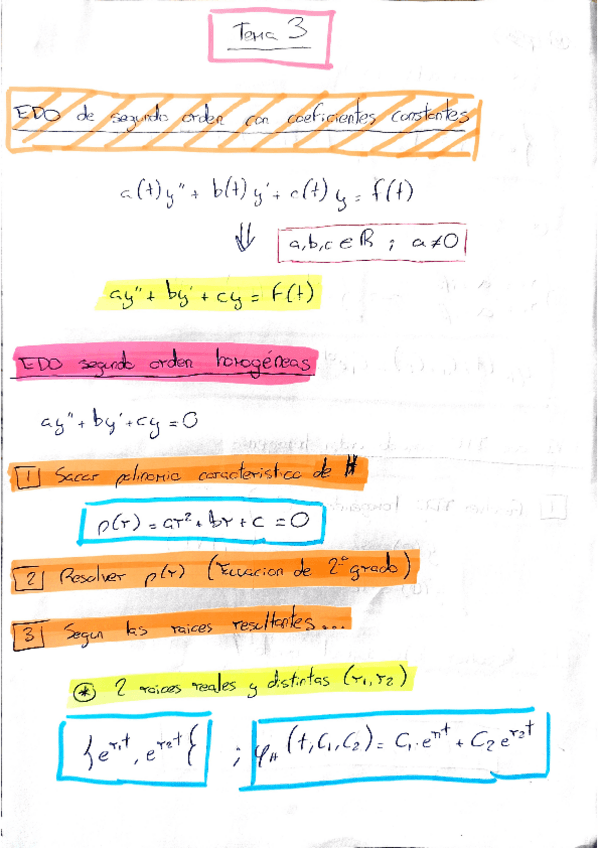 Tema 3
EDO de segundo orden con coeficientes constantes
a(t)y'' + b(t)y' + c(t)y = f(t)
⇓ a,b,c ∈ ℝ ; a ≠ 0
ay'' + by' + cy = f(t)
EDO segundo orden homogéneas
ay'' + by' + cy = 0
1 Sacar polinomio caracteristico de H
p(r) = ar² + br + c = 0
2 Resolver p(r) (Ecuacion de 2º grado)
3 Segun las raices resultantes...
* 2 raices reales y distintas (r₁, r₂)
{e^{r₁t}, e^{r₂t}} ; φ_H (t, C₁, C₂) = C₁·e^{r₁t} + C₂e^{r₂t}